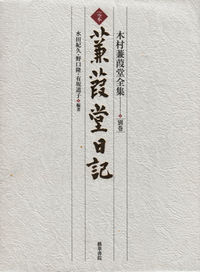 木村蒹葭堂全集 別巻
完本
蒹葭堂日記
水田紀久・野口隆・有坂道子 編著
藝華書院